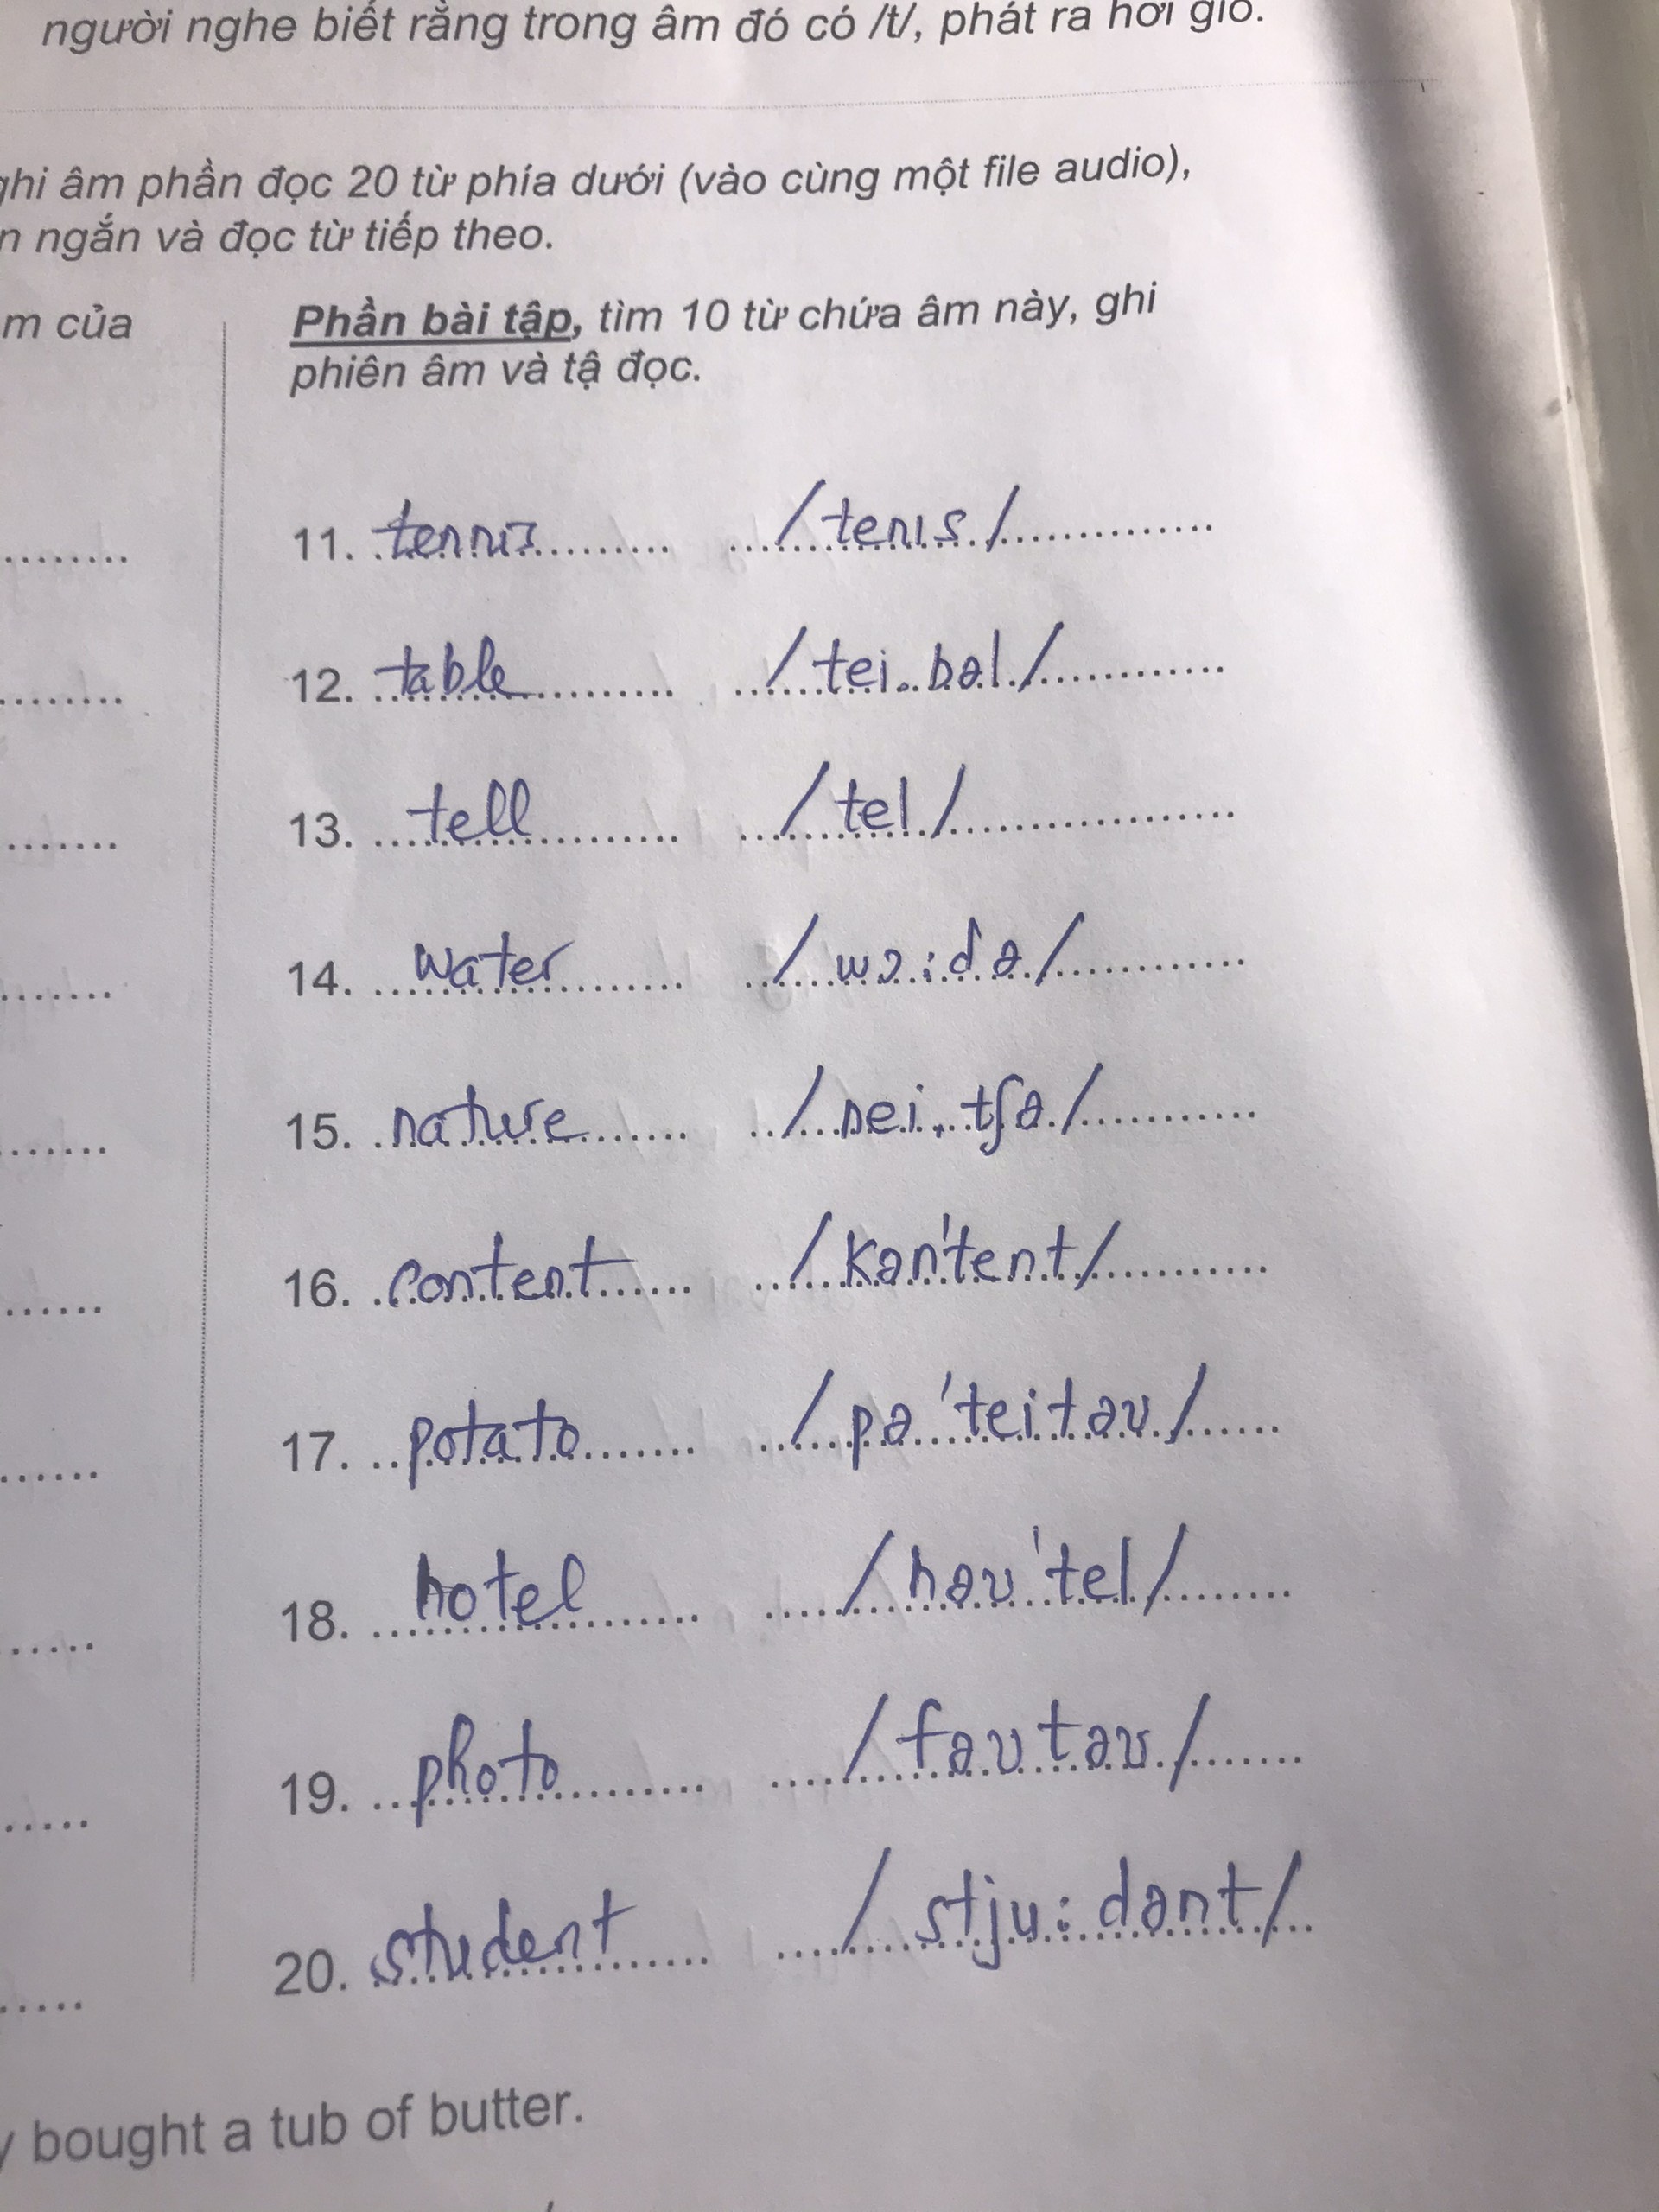 người nghe biết rằng trong âm đó có /t/, phát ra hơi gió.
ghi âm phần đọc 20 từ phía dưới (vào cùng một file audio),
n ngắn và đọc từ tiếp theo.
m của
Phần bài tập, tìm 10 từ chứa âm này, ghi
phiên âm và tậ đọc.
11. tennis /tenɪs/
12. table /tei.bəl/
13. tell /tel/
14. water /wɔ:də/
15. nature /nei.tʃə/
16. content /kən'tent/
17. potato /pə'teitəʊ/
18. hotel /həʊ'tel/
19. photo /fəʊtəʊ/
20. student /stju:dənt/
y bought a tub of butter.